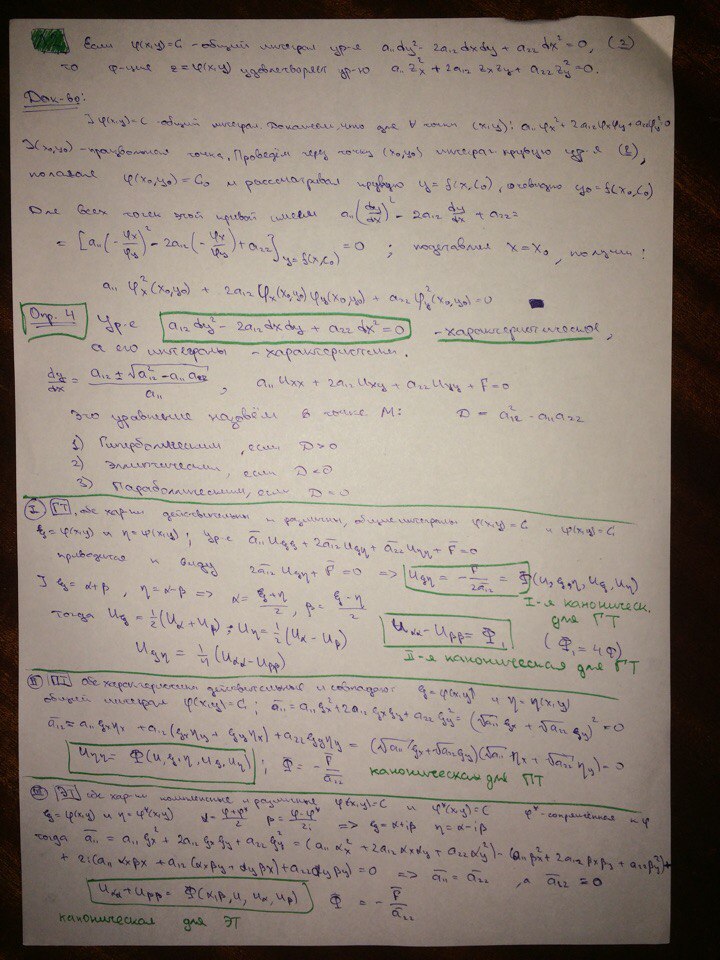 Если φ(x,y)=C - общий интеграл ур-я a₁₁dy² - 2a₁₂dxdy + a₂₂dx² = 0, (2)
то ф-ция z=φ(x,y) удовлетворяет ур-ю a₁₁Zx² + 2a₁₂ZxZy + a₂₂Zy² = 0.
Док-во:
] φ(x,y)=C - общий интеграл. Докажем, что для ∀ точки (x,y): a₁₁φx² + 2a₁₂φxφy + a₂₂φy² = 0
] (x₀,y₀) - произвольная точка. Проведём через точку (x₀,y₀) интеграл. кривую ур-я (2),
полагая φ(x₀,y₀)=C₀ и рассматривая кривую y=f(x,C₀), очевидно y₀=f(x₀,C₀)
Для всех точек этой кривой имеем a₁₁(dy/dx)² - 2a₁₂ dy/dx + a₂₂ =
= [a₁₁(-φx/φy)² - 2a₁₂(-φx/φy) + a₂₂]y=f(x,C₀) = 0 ; подставляя x=x₀, получим:
a₁₁φx²(x₀,y₀) + 2a₁₂φx(x₀,y₀)φy(x₀,y₀) + a₂₂φy²(x₀,y₀)=0
Опр. 4 Ур-е a₁₂dy² - 2a₁₂dxdy + a₂₂dx² = 0 - характеристическое,
а его интегралы - характеристики.
dy/dx = (a₁₂ ± √(a₁₂² - a₁₁a₂₂))/a₁₁ , a₁₁Uxx + 2a₁₂Uxy + a₂₂Uyy + F = 0
Это уравнение назовём в точке M: D = a₁₂² - a₁₁a₂₂
1) Гиперболическим, если D>0
2) Эллиптическим, если D<0
3) Параболическим, если D=0
I ГТ, обе хар-ки действительны и различны, общие интегралы φ(x,y)=C и ψ(x,y)=C,
ξ=φ(x,y) и η=ψ(x,y); ур-е ā₁₁Uξξ + 2ā₁₂Uξη + ā₂₂Uηη + F̄ = 0
приводится к виду 2ā₁₂Uξη + F̄ = 0 => Uξη = -F̄/2ā₁₂ = Φ(u,ξ,η,Uξ,Uη)
I-я каноническ. для ГТ
] ξ=α+β, η=α-β => α=(ξ+η)/2, β=(ξ-η)/2
тогда Uξ = ½(Uα+Uβ); Uη = ½(Uα-Uβ) Uαα - Uββ = Φ₁ (Φ₁ = 4Φ)
Uξη = ¼(Uαα-Uββ) II-я каноническая для ГТ
II ПТ Обе характеристики действительные и совпадают ξ=φ(x,y) и η=η(x,y)
общий интеграл φ(x,y)=C; ā₁₁ = a₁₁ξx² + 2a₁₂ξxξy + a₂₂ξy² = (√a₁₁ ξx + √a₂₂ ξy)² = 0
ā₁₂ = a₁₁ξxηx + a₁₂(ξxηy + ξyηx) + a₂₂ξyηy = (√a₁₁ξx+√a₂₂ξy)(√a₁₁ ηx + √a₂₂ ηy) = 0
Uηη = Φ(u,ξ,η,Uξ,Uη) ; Φ = -F̄/ā₂₂ каноническая для ПТ
III ЭТ обе хар-ки комплексные и различные φ(x,y)=C и φ*(x,y)=C φ*-сопряжённая к φ
ξ=φ(x,y) и η=φ*(x,y) α=(φ+φ*)/2 β=(φ-φ*)/2i => ξ=α+iβ η=α-iβ
тогда ā₁₁ = a₁₁ξx² + 2a₁₂ξxξy + a₂₂ξy² = (a₁₁αx² + 2a₁₂αxαy + a₂₂αy²) - (a₁₁βx² + 2a₁₂βxβy + a₂₂βy²) +
+ 2i(a₁₁αxβx + a₁₂(αxβy + αyβx) + a₂₂αyβy) = 0 => ā₁₁ = ā₂₂, а ā₁₂ = 0
Uαα + Uββ = Φ(α,β,u,uα,uβ) Φ = -F̄/ā₂₂
каноническая для ЭТ